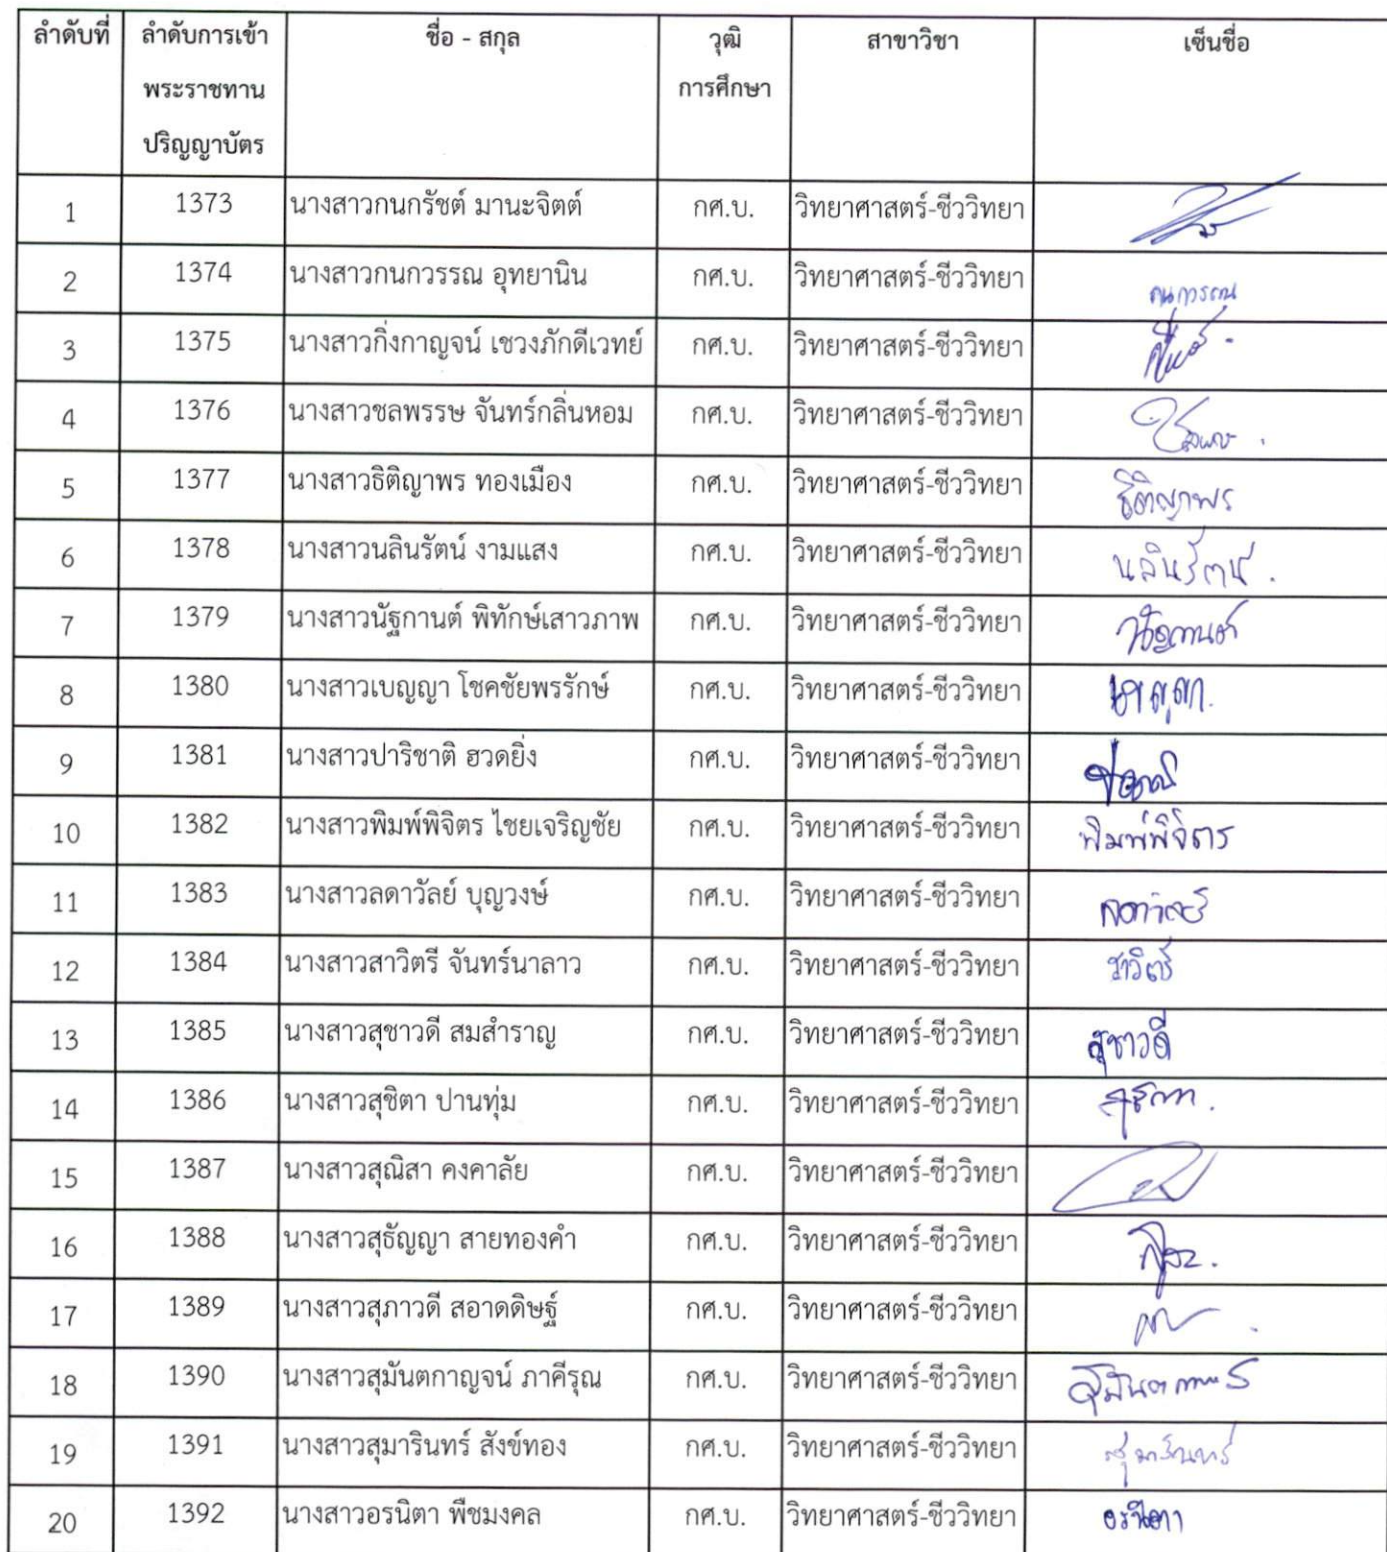 ลำดับที่ ลำดับการเข้า ชื่อ - สกุล วุฒิ สาขาวิชา เซ็นชื่อ
พระราชทาน การศึกษา
ปริญญาบัตร
1 1373 นางสาวกนกรัชต์ มานะจิตต์ กศ.บ. วิทยาศาสตร์-ชีววิทยา
2 1374 นางสาวกนกวรรณ อุทยานิน กศ.บ. วิทยาศาสตร์-ชีววิทยา
3 1375 นางสาวกิ่งกาญจน์ เชวงภักดีเวทย์ กศ.บ. วิทยาศาสตร์-ชีววิทยา
4 1376 นางสาวชลพรรษ จันทร์กลิ่นหอม กศ.บ. วิทยาศาสตร์-ชีววิทยา
5 1377 นางสาวธิติญาพร ทองเมือง กศ.บ. วิทยาศาสตร์-ชีววิทยา ธิติญาพร
6 1378 นางสาวนลินรัตน์ งามแสง กศ.บ. วิทยาศาสตร์-ชีววิทยา นลินรัตน์.
7 1379 นางสาวนัฐกานต์ พิทักษ์เสาวภาพ กศ.บ. วิทยาศาสตร์-ชีววิทยา นัฐกานต์
8 1380 นางสาวเบญญา โชคชัยพรรักษ์ กศ.บ. วิทยาศาสตร์-ชีววิทยา เบญญา.
9 1381 นางสาวปาริชาติ ฮวดยิ่ง กศ.บ. วิทยาศาสตร์-ชีววิทยา
10 1382 นางสาวพิมพ์พิจิตร ไชยเจริญชัย กศ.บ. วิทยาศาสตร์-ชีววิทยา พิมพ์พิจิตร
11 1383 นางสาวลดาวัลย์ บุญวงษ์ กศ.บ. วิทยาศาสตร์-ชีววิทยา ลดาวัลย์
12 1384 นางสาวสาวิตรี จันทร์นาลาว กศ.บ. วิทยาศาสตร์-ชีววิทยา สาวิตรี
13 1385 นางสาวสุชาวดี สมสำราญ กศ.บ. วิทยาศาสตร์-ชีววิทยา สุชาวดี
14 1386 นางสาวสุชิตา ปานทุ่ม กศ.บ. วิทยาศาสตร์-ชีววิทยา สุชิตา.
15 1387 นางสาวสุณิสา คงคาลัย กศ.บ. วิทยาศาสตร์-ชีววิทยา
16 1388 นางสาวสุธัญญา สายทองคำ กศ.บ. วิทยาศาสตร์-ชีววิทยา
17 1389 นางสาวสุภาวดี สอาดดิษฐ์ กศ.บ. วิทยาศาสตร์-ชีววิทยา
18 1390 นางสาวสุมันตกาญจน์ ภาคีรุณ กศ.บ. วิทยาศาสตร์-ชีววิทยา
19 1391 นางสาวสุมารินทร์ สังข์ทอง กศ.บ. วิทยาศาสตร์-ชีววิทยา สุมารินทร์
20 1392 นางสาวอรนิตา พืชมงคล กศ.บ. วิทยาศาสตร์-ชีววิทยา อรนิตา